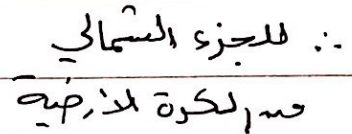 ∴ للجزء الشمالي
من الكرة الأرضية